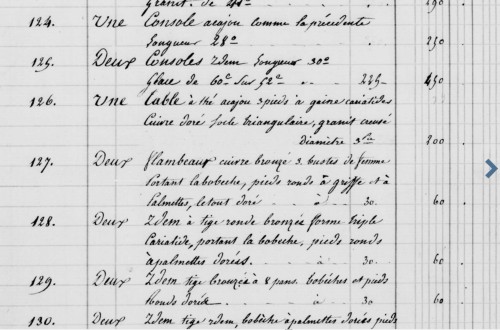 Granit. de 41° 290
124. Une Console acajou comme la précédente
Longueur 28° 250
125. Deux Consoles Idem Longueur 30°
Glace de 60° sur 52° 225 450
126. Une Table à thé acajou 3 pieds à gaine cariatides
Cuivre doré socle triangulaire, granit creusé
Diamètre 800
127. Deux flambeaux cuivre bronzé 3. bustes de femme
Portant la bobeche, pieds ronds à griffe et à
Palmettes, le tout doré à 30. 60
128. Deux Idem à tige ronde bronzée forme triple
Cariatide, portant la bobeche, pieds ronds
à palmettes dorées. à 30. 60
129. Deux Idem tige bronzée à 8 pans. bobéches et pieds
Ronds dorés. à 30 60
130. Deux Idem tige idem, bobèche à palmettes dorées pieds